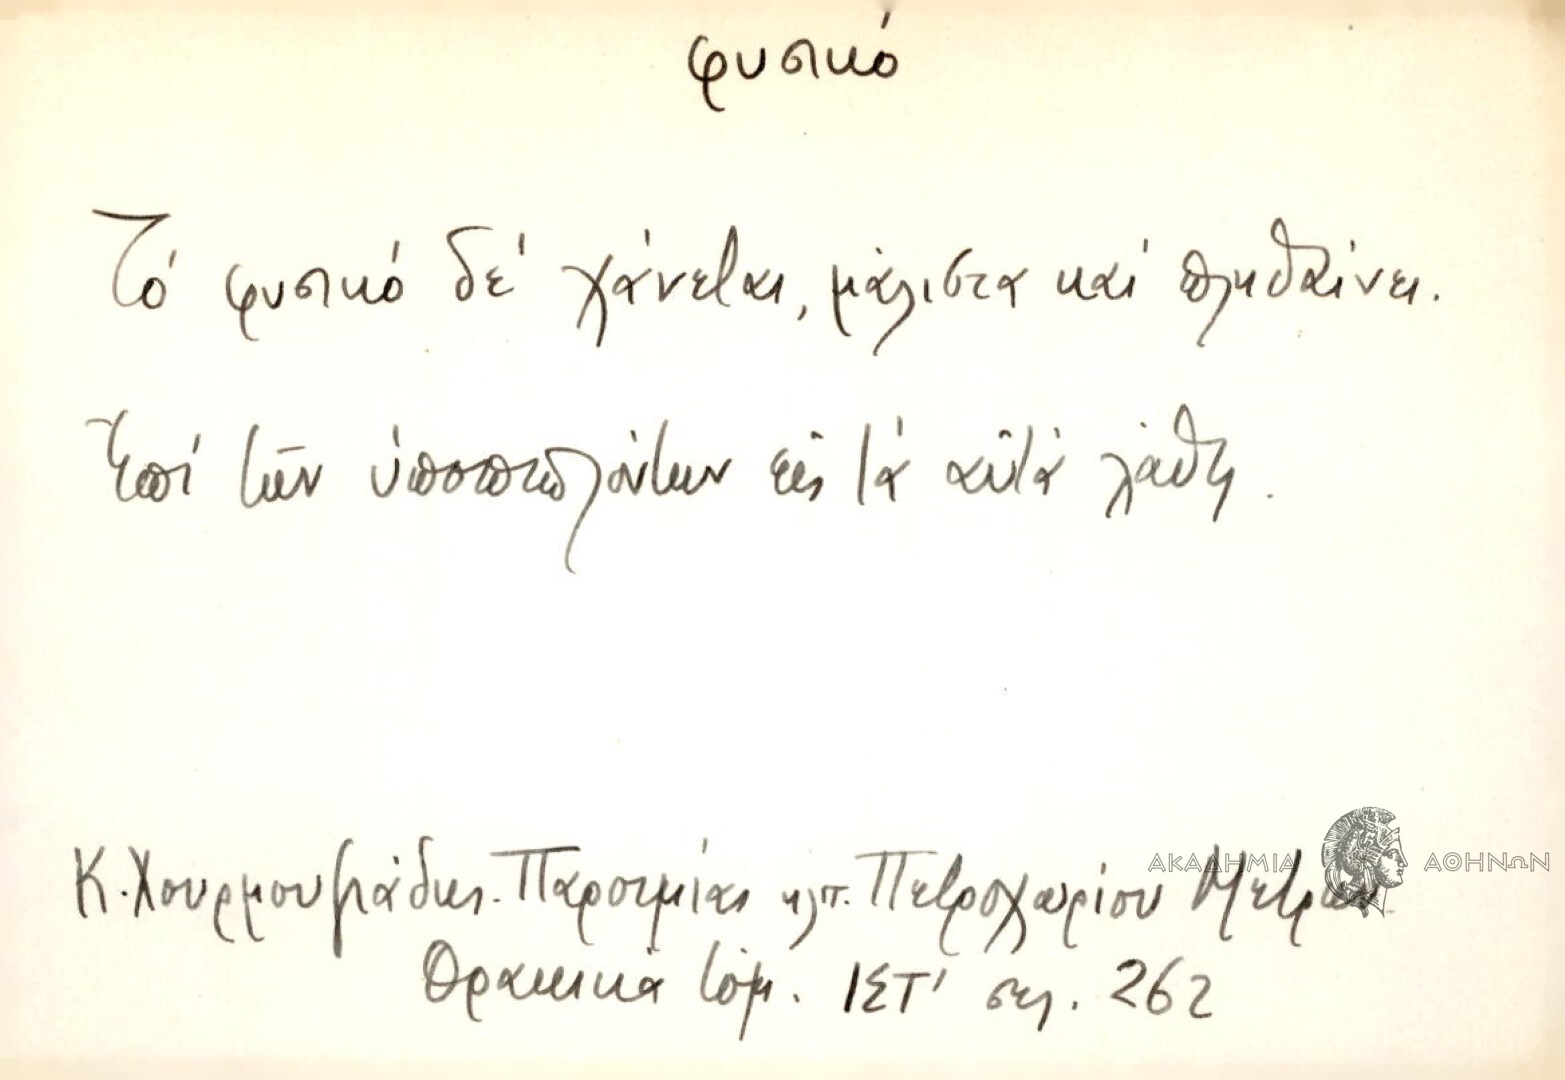 φυσικό
Τό φυσικό δέ χάνεται, μάλιστα καί πληθαίνει.
Ἐπί τῶν ὑποπιπτόντων εἰς τά αὐτά λάθη.
Κ. Χουρμουζιάδης. Παροιμίαι κλπ. Πετροχωρίου Μετρῶν
ΑΚΑΔΗΜΙΑ ΑΘΗΝΩΝ
Θρακικά τόμ. ΙΣΤ' σελ. 262